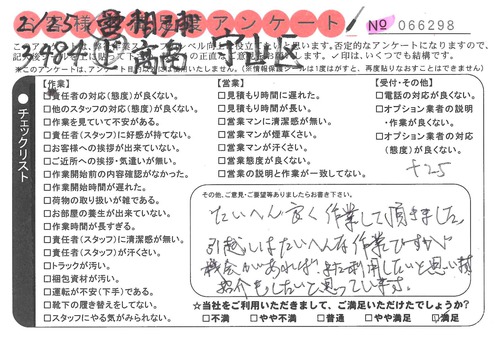 お客様
アンケート
№ 066298
2/25
守山区
チェックリスト
【作業】
□責任者の対応(態度)が良くない。
□他のスタッフの対応(態度)が良くない。
□作業を見ていて不安がある。
□責任者(スタッフ)に好感が持てない。
□お客様への挨拶が出来ていない。
□ご近所への挨拶・気遣いが無い。
□作業開始前の内容確認がなかった。
□作業開始時間が遅れた。
□荷物の取り扱いが雑である。
□お部屋の養生が出来ていない。
□作業時間が長すぎる。
□責任者(スタッフ)に清潔感が無い。
□責任者(スタッフ)が汗くさい。
□トラックが汚い。
□梱包資材が汚い。
□運転が不安(下手)である。
□靴下の履き替えをしてない。
□スタッフにやる気がみられない。
【営業】
□見積もり時間に遅れた。
□見積もり時間が長い。
□営業マンに清潔感が無い。
□営業マンが煙草くさい。
□営業マンが汗くさい。
□営業態度が良くない。
□営業の説明と作業が一致してない。
【受付・その他】
□電話の対応が良くない。
□オプション業者の説明
・作業が良くない。
□オプション業者の対応
(態度)が良くない。
+25
その他、ご意見・ご要望等ありましたらお書き下さい。
たいへん良く作業して頂きました
引越しはたいへんな作業ですから
機会があれば、また利用したいと思います
紹介もしたいと思っています。
☆当社をご利用いただきまして、ご満足いただけたでしょうか?
□不満 □やや不満 □普通 □やや満足 ☑満足